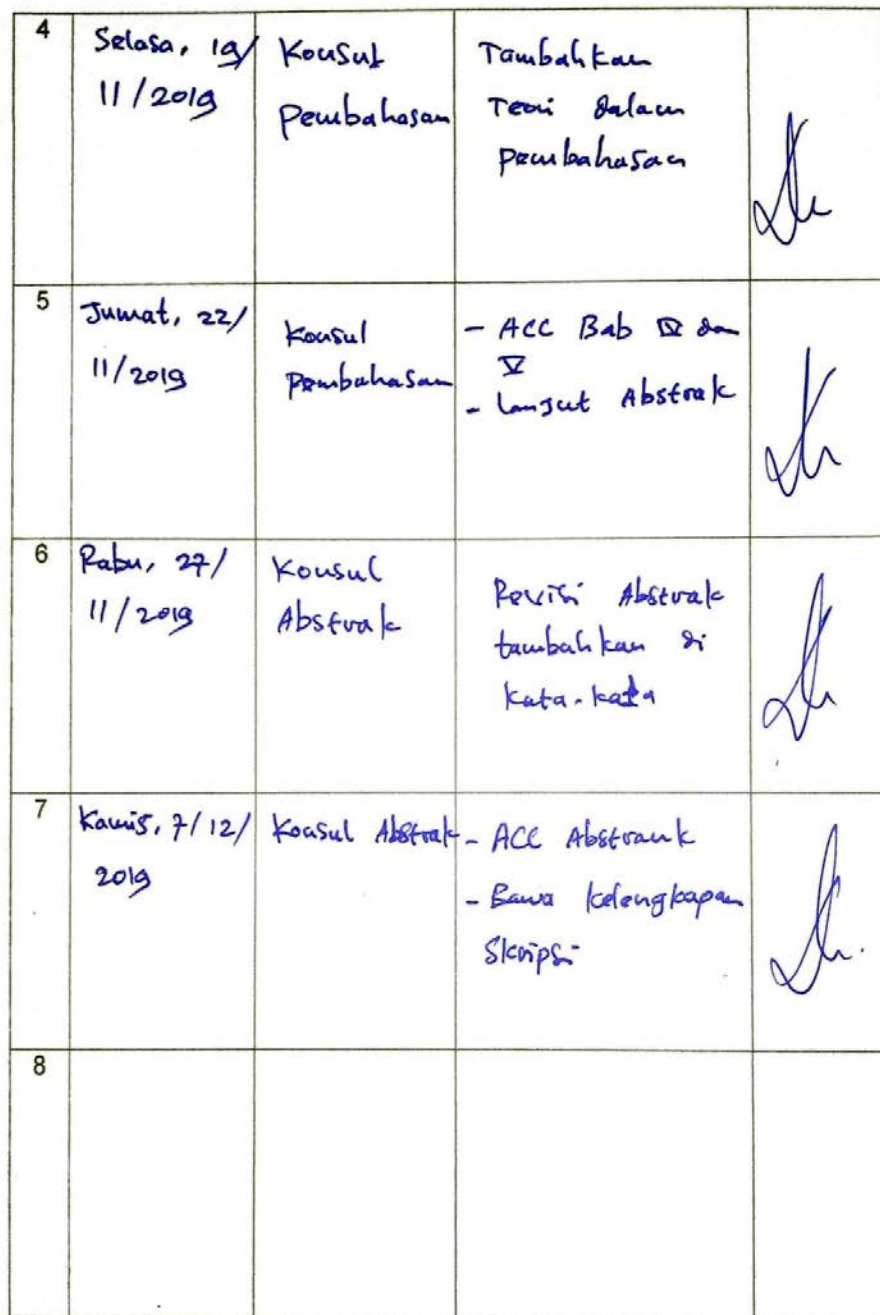 4
Selasa, 19/
11/2019
Konsul
Pembahasan
Tambahkan
Teori dalam
pembahasan
5
Jumat, 22/
11/2019
Konsul
Pembahasan
- ACC Bab IV dan
V
- Lanjut Abstrak
6
Rabu, 27/
11/2019
Konsul
Abstrak
Revisi Abstrak
tambahkan di
kata-kata
7
Kamis, 7/12/
2019
Konsul Abstrak
- ACC Abstrak
- Bawa kelengkapan
Skripsi
8